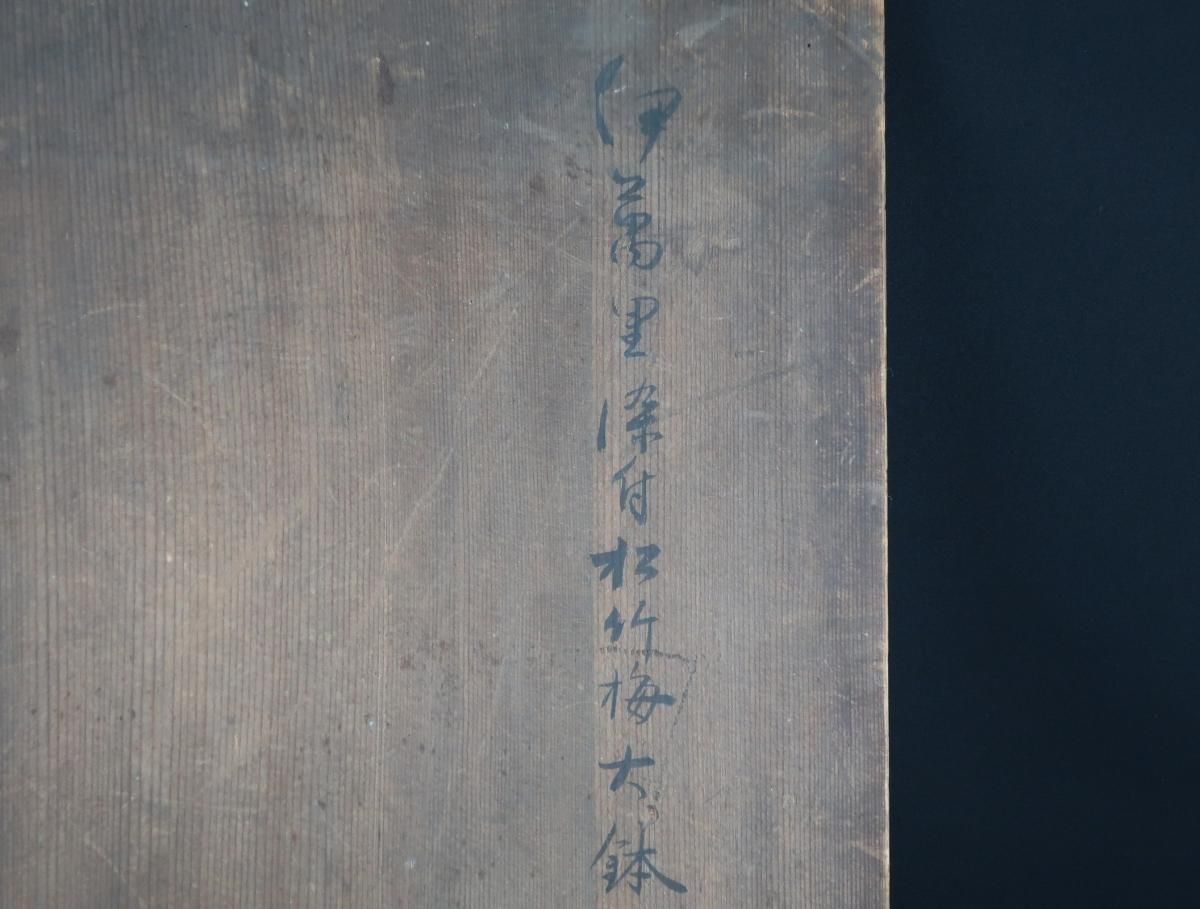 伊萬里染付松竹梅大鉢